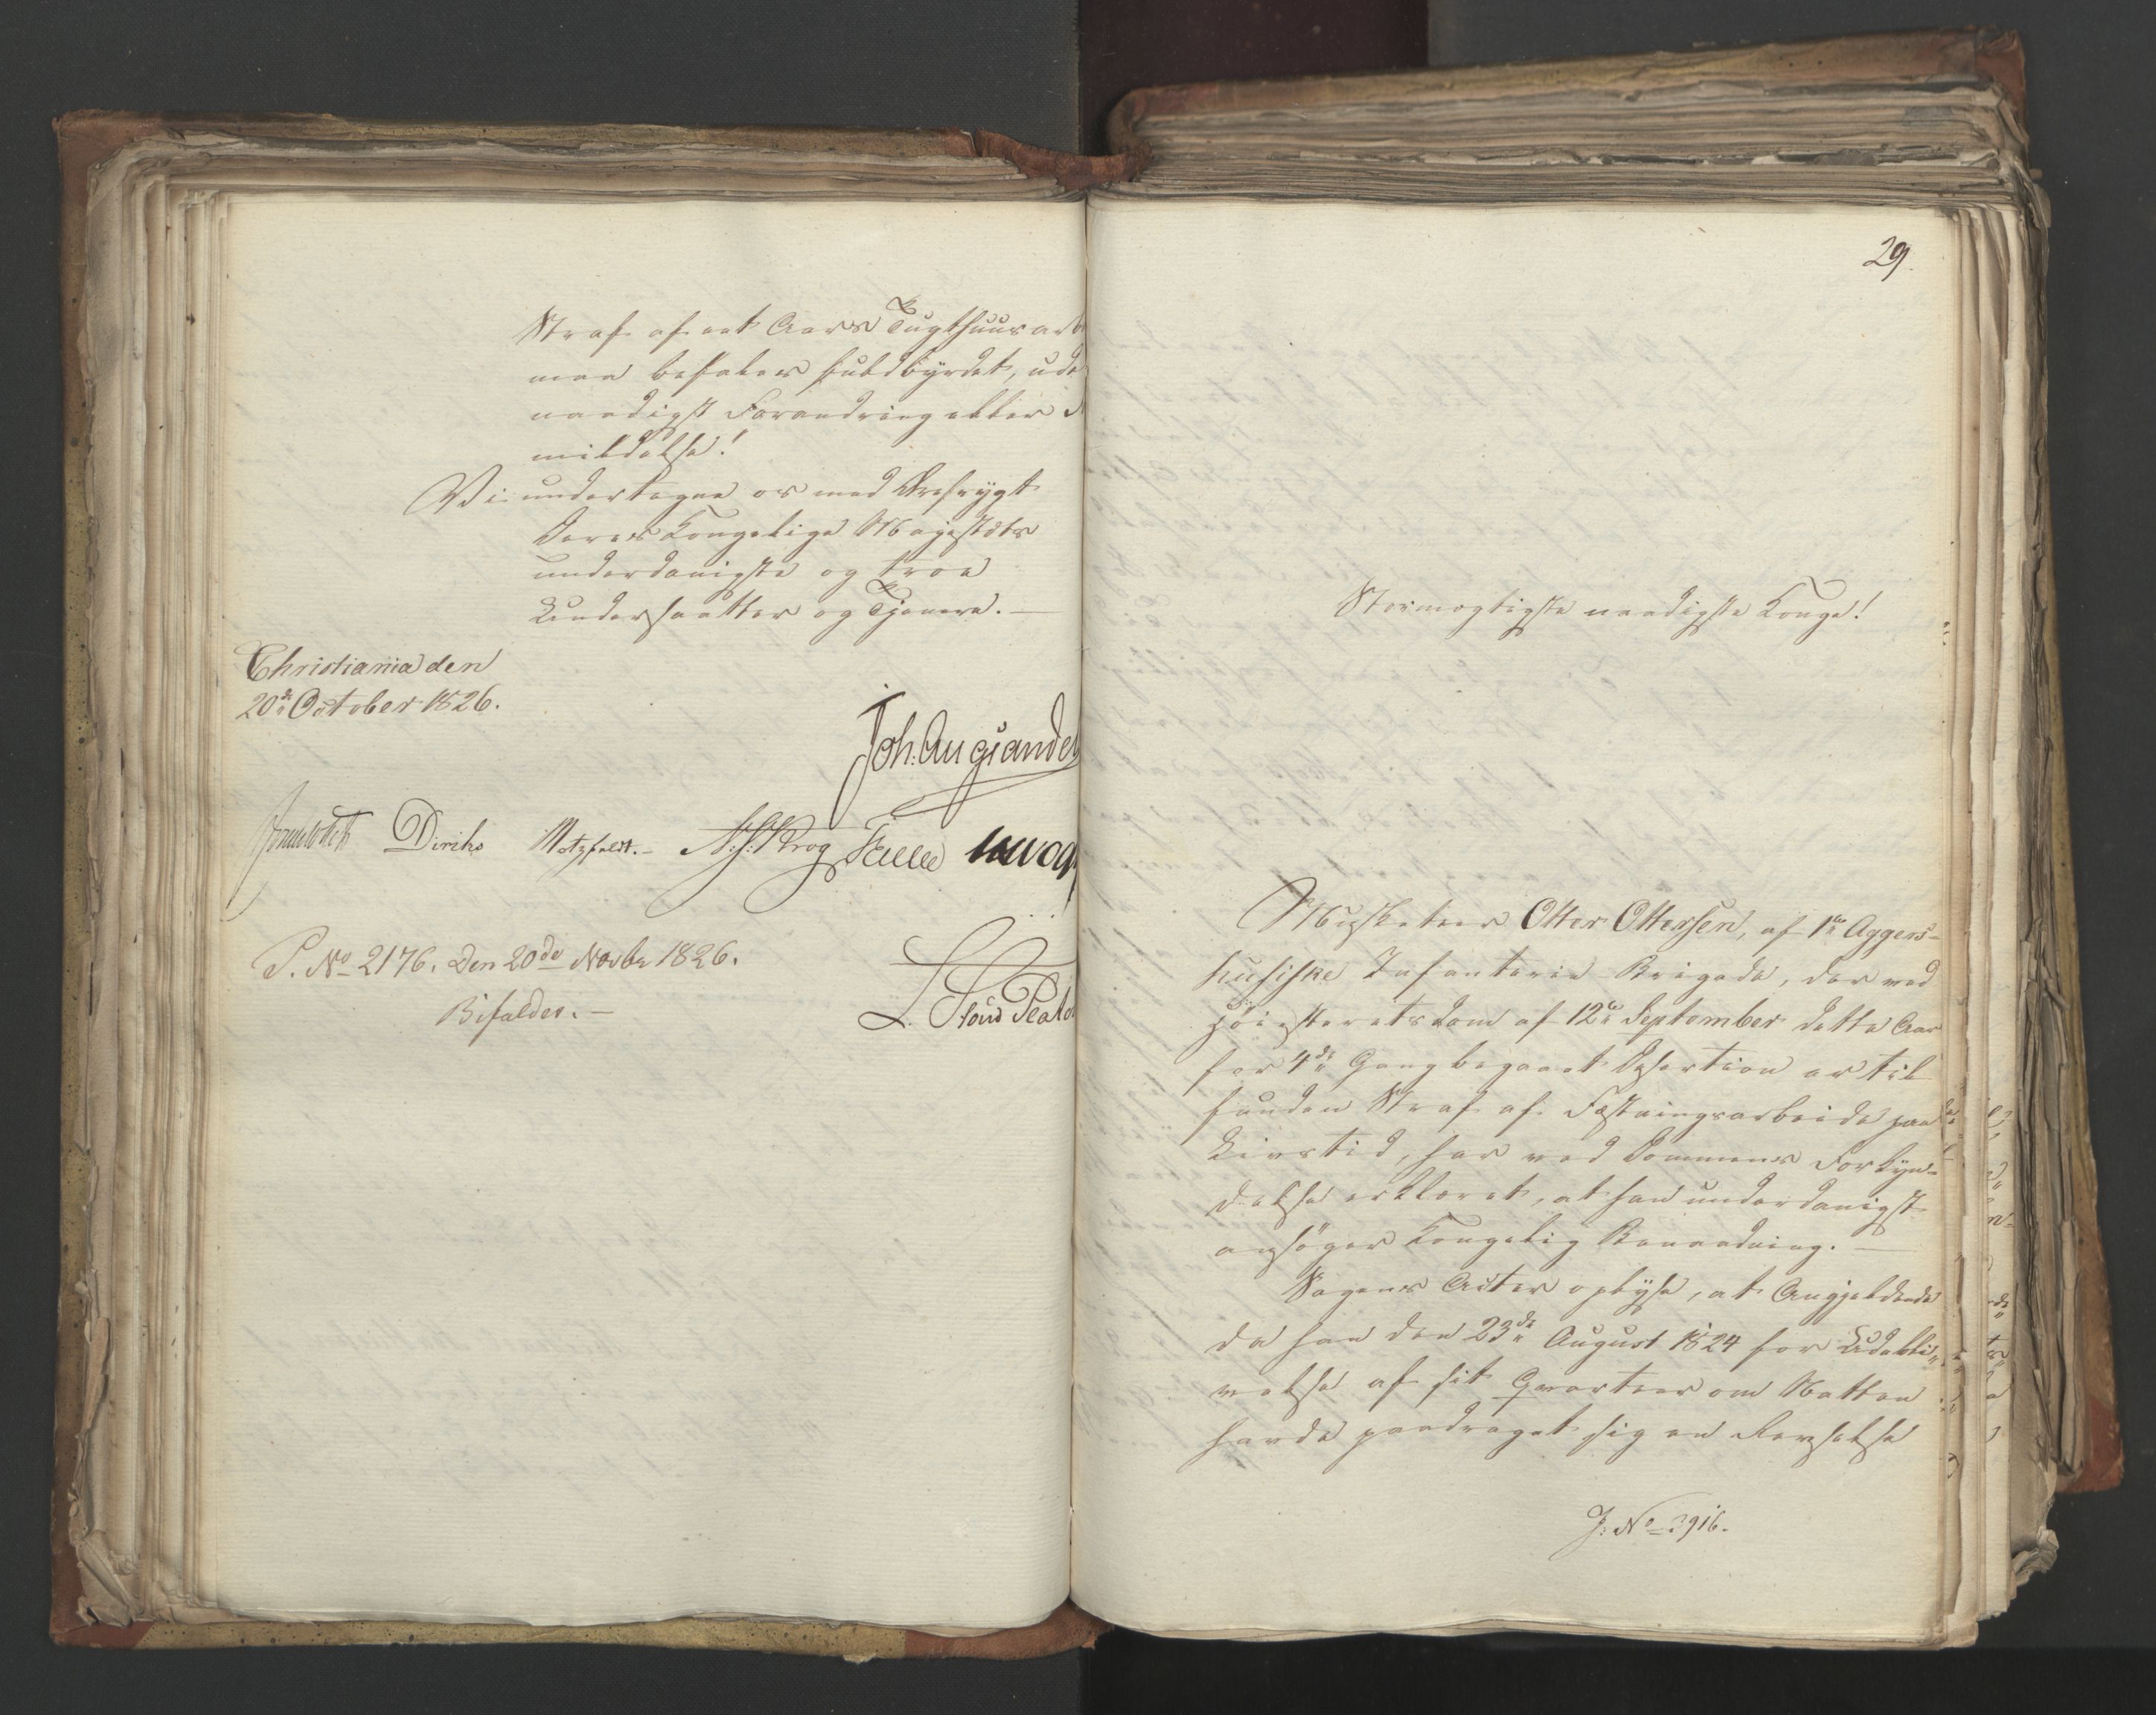 Straf af eet Aars Tugthuusarb
maa befales fuldbyrdet, ude
naadigst Forandring eller 
mildelse!
Vi undertegne os med Ærefrygt
Deres Kongelige Majestæts
underdanigste og troe
Undersaatter og Tjenere. —
Christiania den
20de October 1826.
Joh: Aug: Sande
Sommerhielm Diriks Motzfeldt. — N: J: Krog Falle
P. No 2176. Den 20de Novbr 1826.
Bifaldes. —
29.
Stormægtigste naadigste Konge!
Musketeer Otter Ottersen, af 1ste Aggers-
husiske Infanterie Brigade, der ved
Höiesteretsdom af 12te September dette Aar
for 4de Gang begaaet Desertion er til-
funden Straf af Fæstningsarbeide paa
Livstid, har ved Dommens Forkyn-
delse erklæret, at han underdanigst
ansöger Kongelig Benaadning. —
Sagens Acter oplyse, at Angjeldende
da han den 23de August 1824 for Udebli-
velse af sit Qvarteer om Natten
havde paadraget sig en Revselse
J: No 2916.